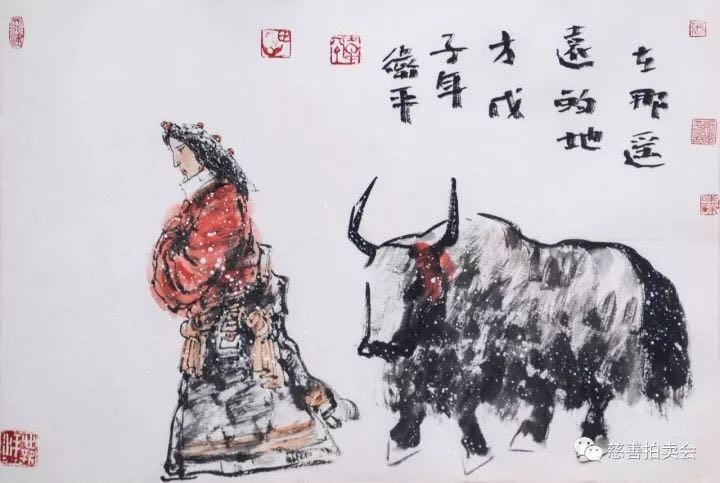 在那遥
遠的地
方戊
子年
衛平
慈善拍卖会